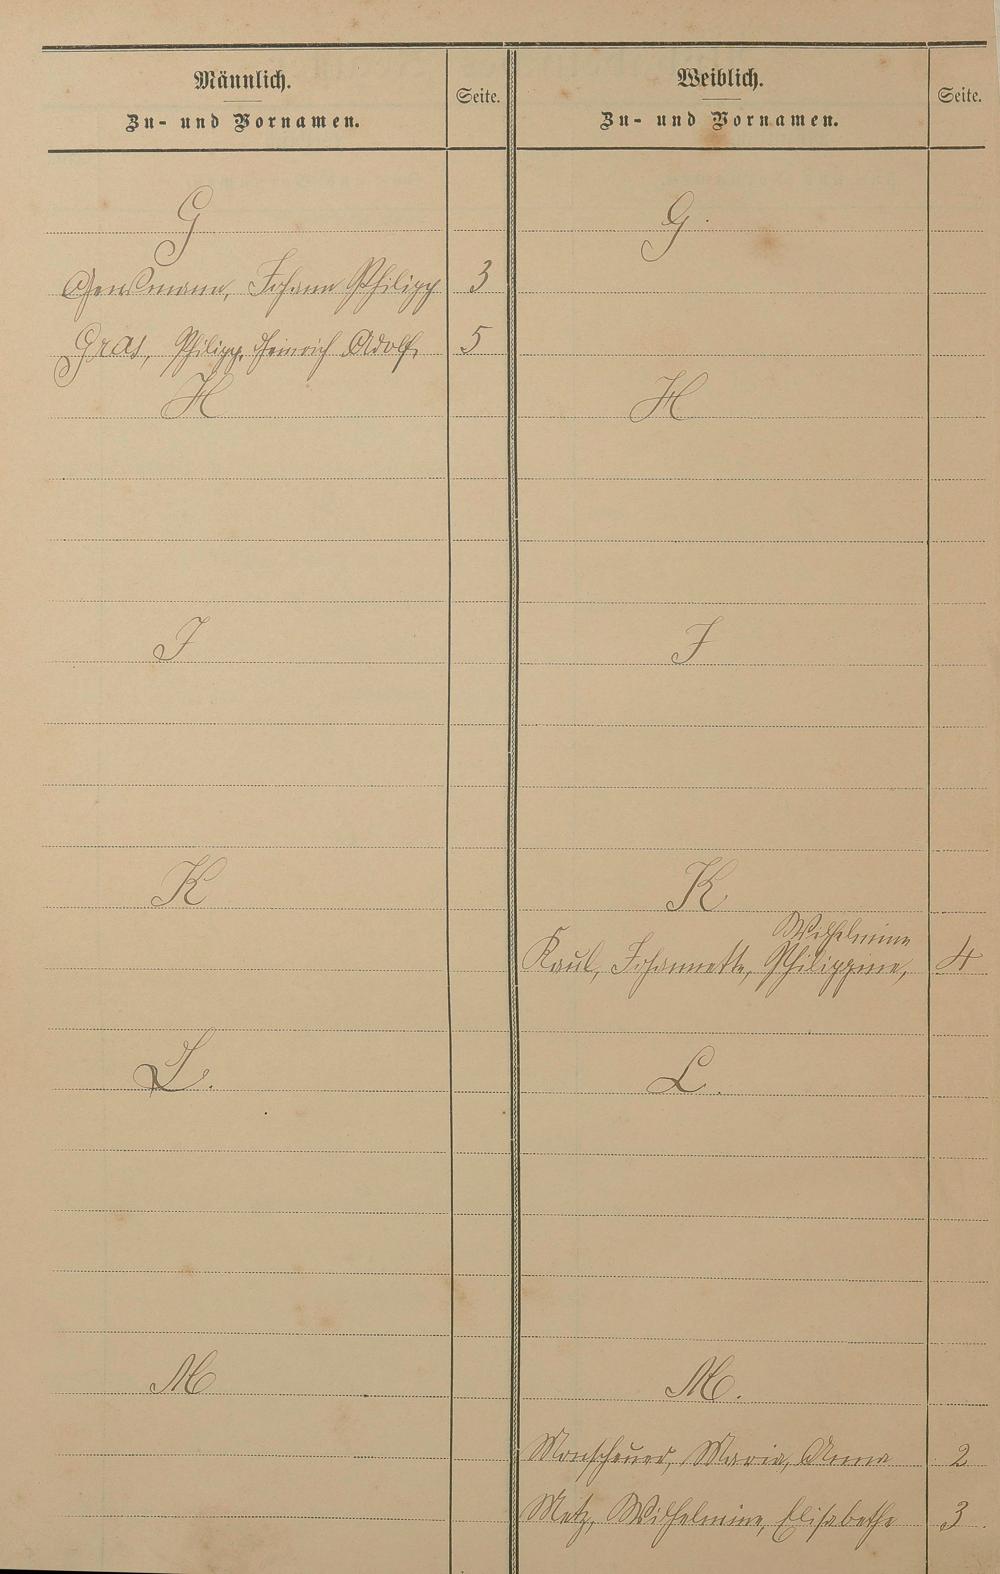 Männlich.
Zu- und Vornamen.
Seite.
G
Gensmann, Johann Philipp 3
Gras, Philipp, Heinrich Adolf, 5
H
J
K
L.
M
Weiblich.
Zu- und Vornamen.
Seite.
G.
H
J
K
Wilhelmine
Kaul, Johannette, Philippine, 4
L.
M.
Monscheuer, Maria, Anna 2
Metz, Wilhelmine, Elisabethe 3